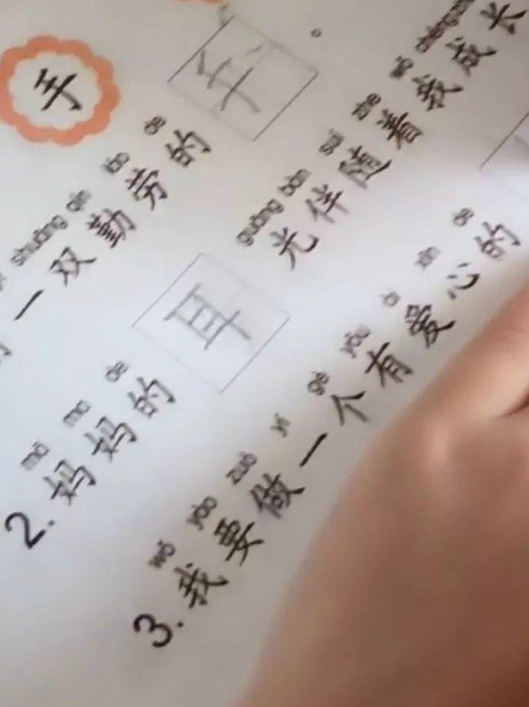 手
shuāng qín láo de
一双勤劳的手
mā ma de guāng bàn suí zhe wǒ chéng zhǎng
2. 妈妈的耳光伴随着我成长
wǒ yào zuò yí gè yǒu ài xīn de
3. 我要做一个有爱心的